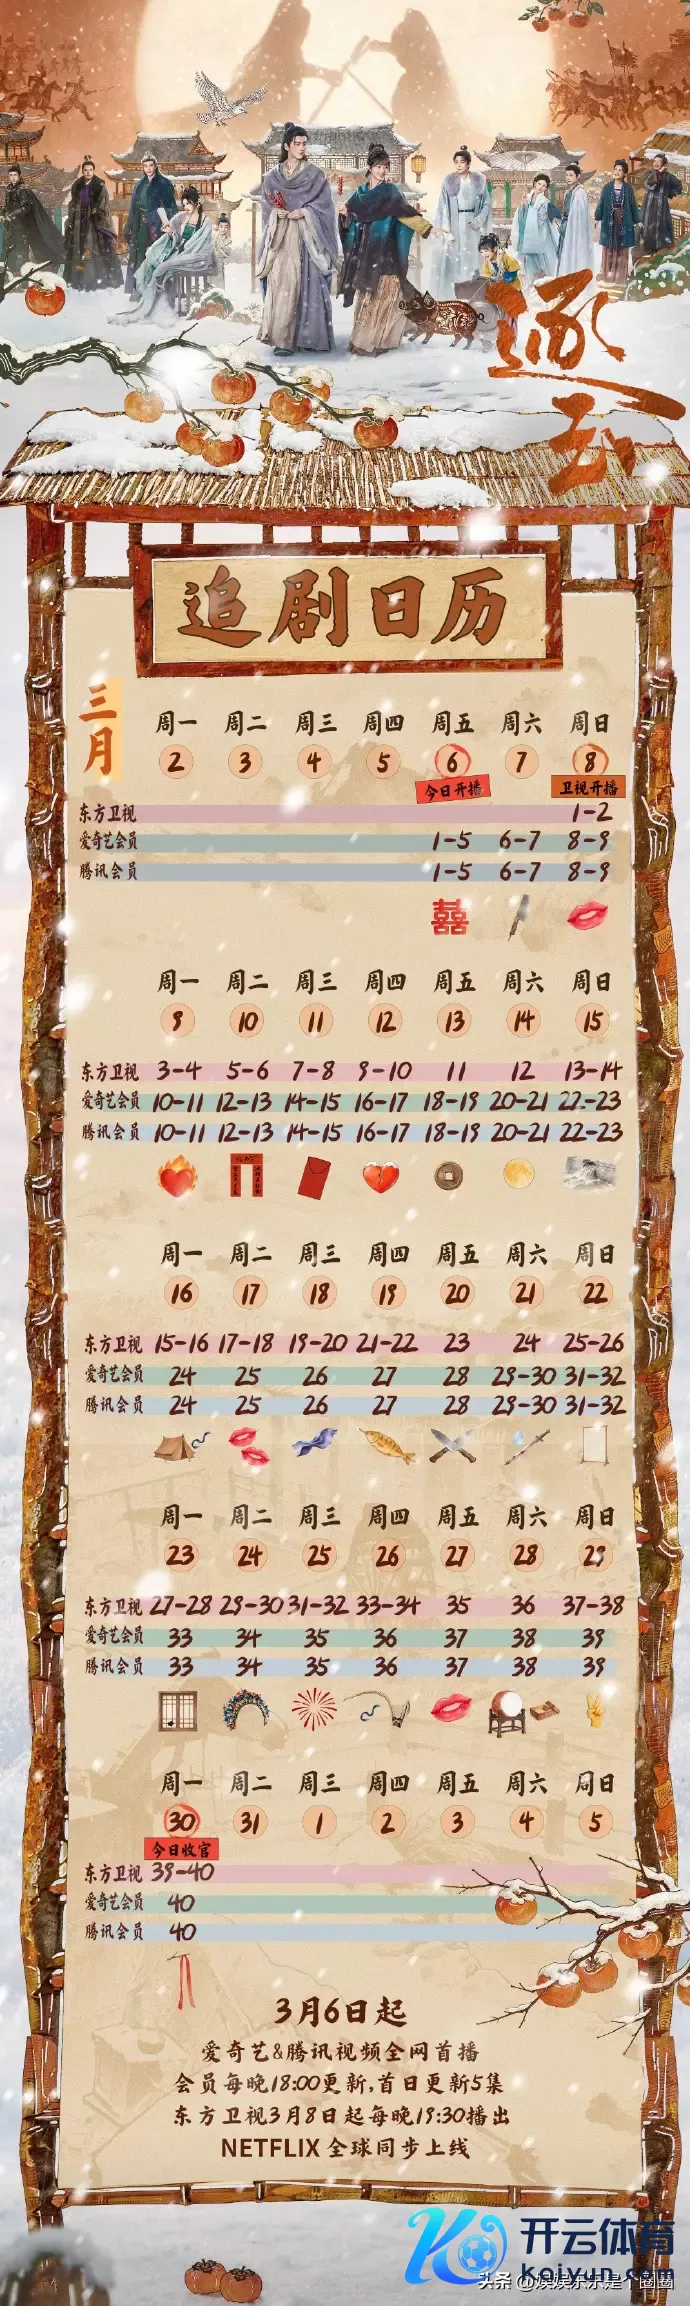 逐玉
追剧日历
三月
周一 周二 周三 周四 周五 周六 周日
2 3 4 5 6 7 8
今日开播 卫视开播
东方卫视 1-2
爱奇艺会员 1-5 6-7 8-9
腾讯会员 1-5 6-7 8-9
囍
周一 周二 周三 周四 周五 周六 周日
9 10 11 12 13 14 15
东方卫视 3-4 5-6 7-8 9-10 11 12 13-14
爱奇艺会员 10-11 12-13 14-15 16-17 18-19 20-21 22-23
腾讯会员 10-11 12-13 14-15 16-17 18-19 20-21 22-23
周一 周二 周三 周四 周五 周六 周日
16 17 18 19 20 21 22
东方卫视 15-16 17-18 19-20 21-22 23 24 25-26
爱奇艺会员 24 25 26 27 28 29-30 31-32
腾讯会员 24 25 26 27 28 29-30 31-32
周一 周二 周三 周四 周五 周六 周日
23 24 25 26 27 28 29
东方卫视 27-28 29-30 31-32 33-34 35 36 37-38
爱奇艺会员 33 34 35 36 37 38 39
腾讯会员 33 34 35 36 37 38 39
周一 周二 周三 周四 周五 周六 周日
30 31 1 2 3 4 5
今日收官
东方卫视 39-40
爱奇艺会员 40
腾讯会员 40
3月6日起
爱奇艺&腾讯视频全网首播
会员每晚18:00更新,首日更新5集
东方卫视3月8日起每晚19:30播出
NETFLIX 全球同步上线
开云体育
Kaiyun.com
头条 @娱娱乐乐是个圈圈